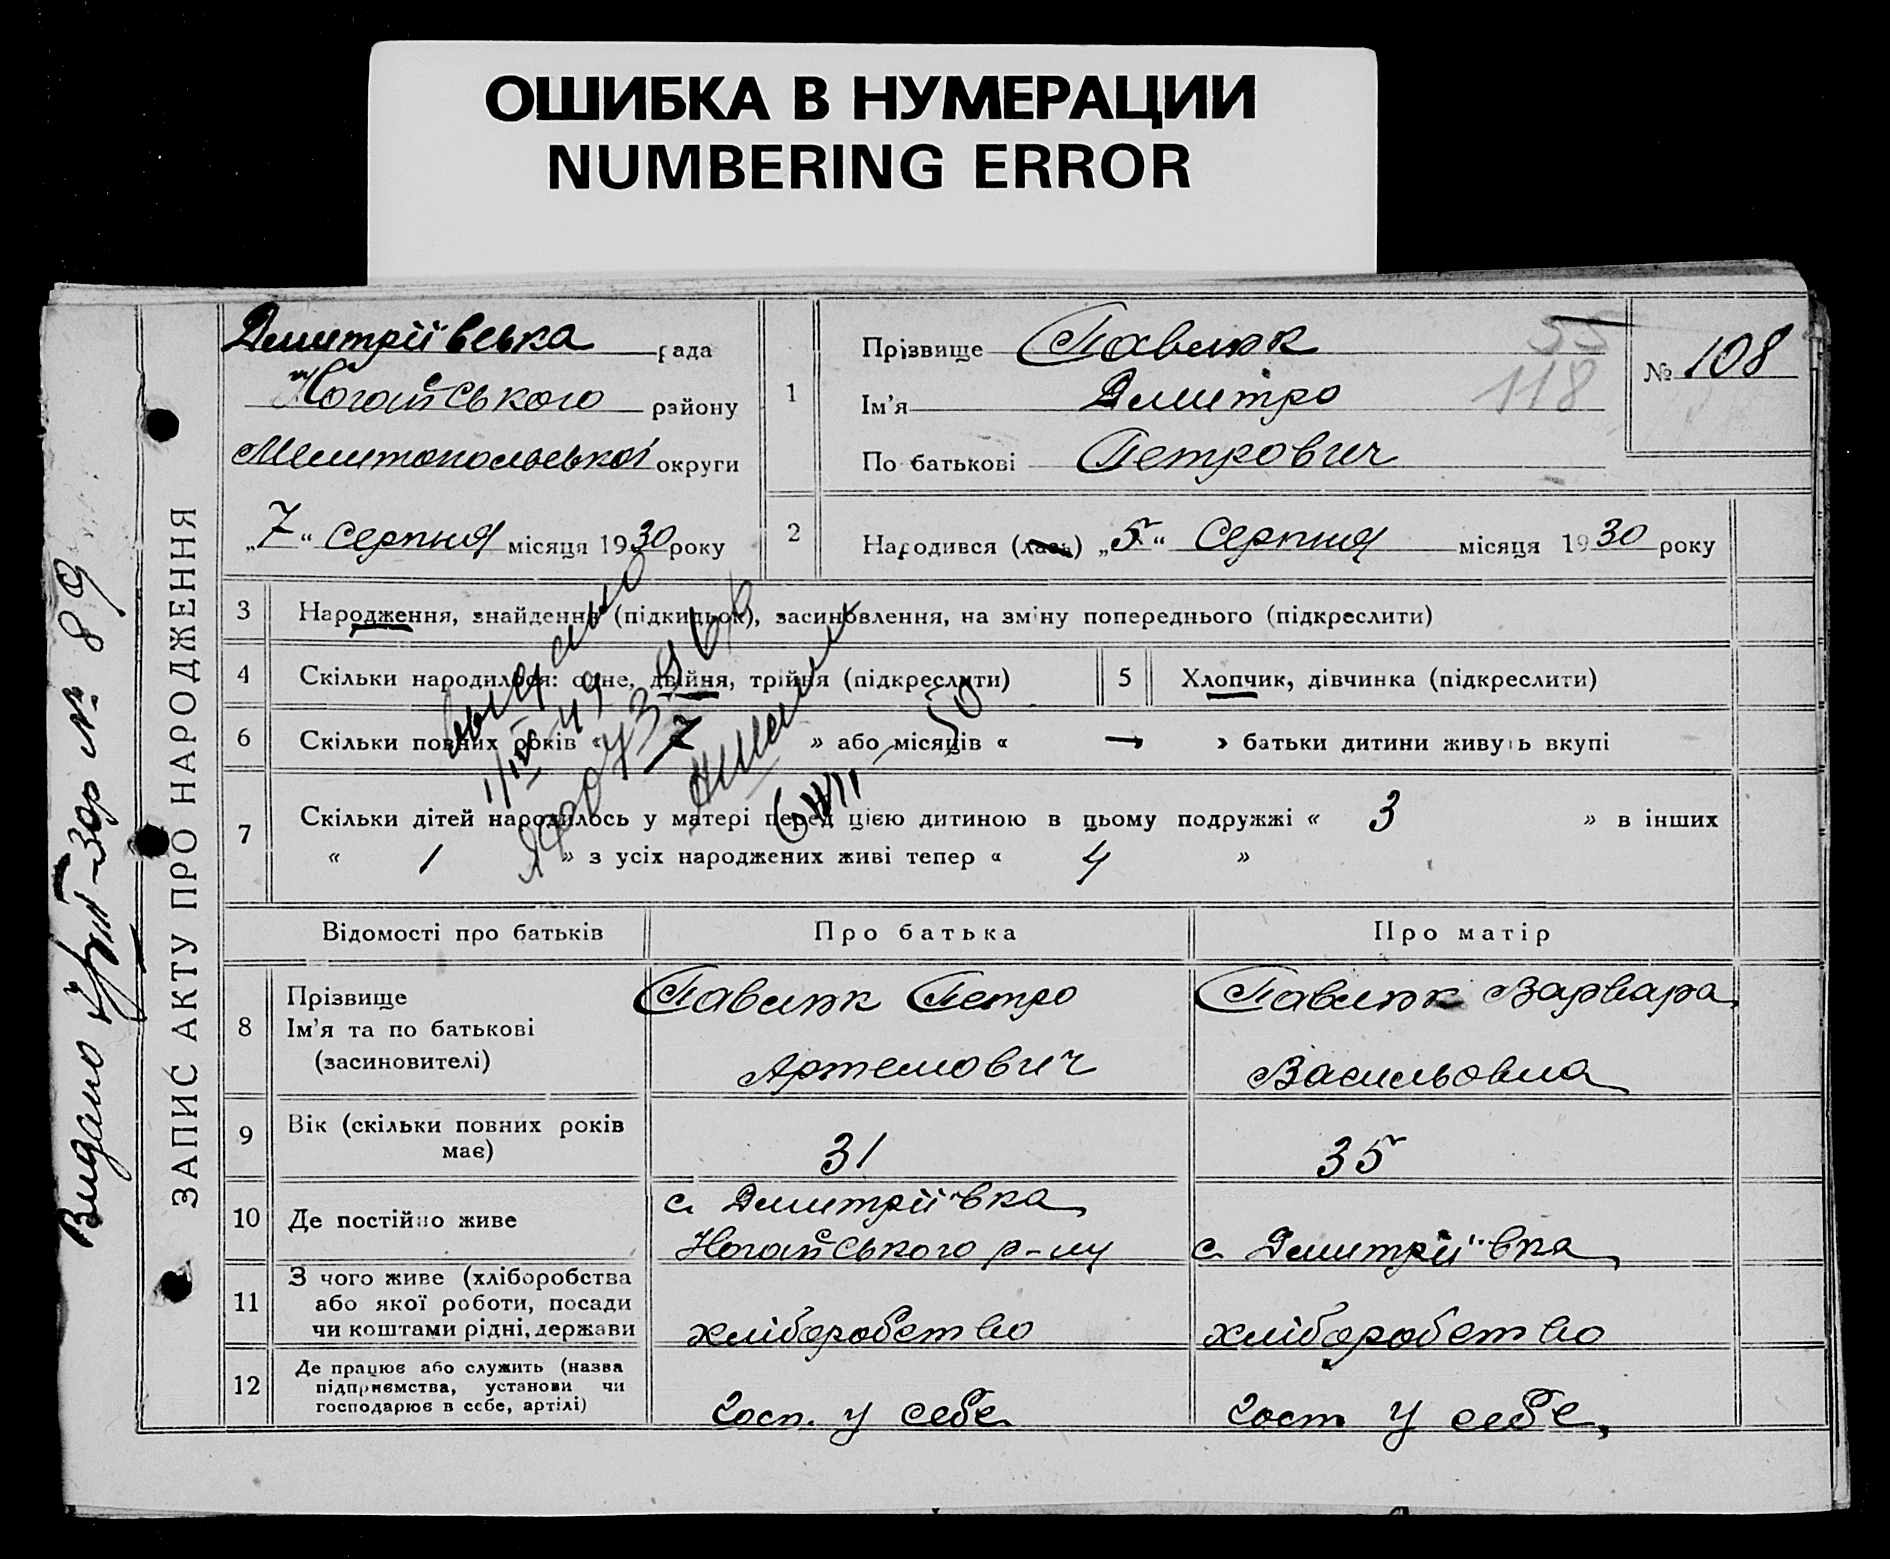 ОШИБКА В НУМЕРАЦИИ
NUMBERING ERROR
Дмитріївська рада
Ногайського району
Мелитопольської округи
„7“ серпня місяця 1930 року
1
Прізвище Павлюк
Ім'я Дмитро
По батькові Петрович
55
118
№ 108
2
Народився (лась) „5“ Серпня місяця 1930 року
3 Народження, знайдення (підкидьок), засиновлення, на зміну попереднього (підкреслити)
4 Скільки народилося: одне, двійня, трійня (підкреслити)
5 Хлопчик, дівчинка (підкреслити)
6 Скільки повних років « 7 » або місяців « » батьки дитини живуть вкупі
7 Скільки дітей народилось у матері перед цією дитиною в цьому подружжі « 3 » в інших
« 1 » з усіх народжених живі тепер « 4 »
Відомості про батьків
Про батька
Про матір
8
Прізвище
Ім'я та по батькові
(засиновителі)
Павлюк Петро
Артемович
Павлюк Варвара
Васильовна
9
Вік (скільки повних років
має)
31
35
10 Де постійно живе
с. Дмитріївка
Ногайського р-ну
с. Дмитріївка
11
З чого живе (хліборобства
або якої роботи, посади
чи коштами рідні, держави
хліборобство
хліборобство
12
Де працює або служить (назва
підприємства, установи чи
господарює в себе, артілі)
Госп. у себе
Госп у себе,
ЗАПИС АКТУ ПРО НАРОДЖЕННЯ
Видано
№ 89